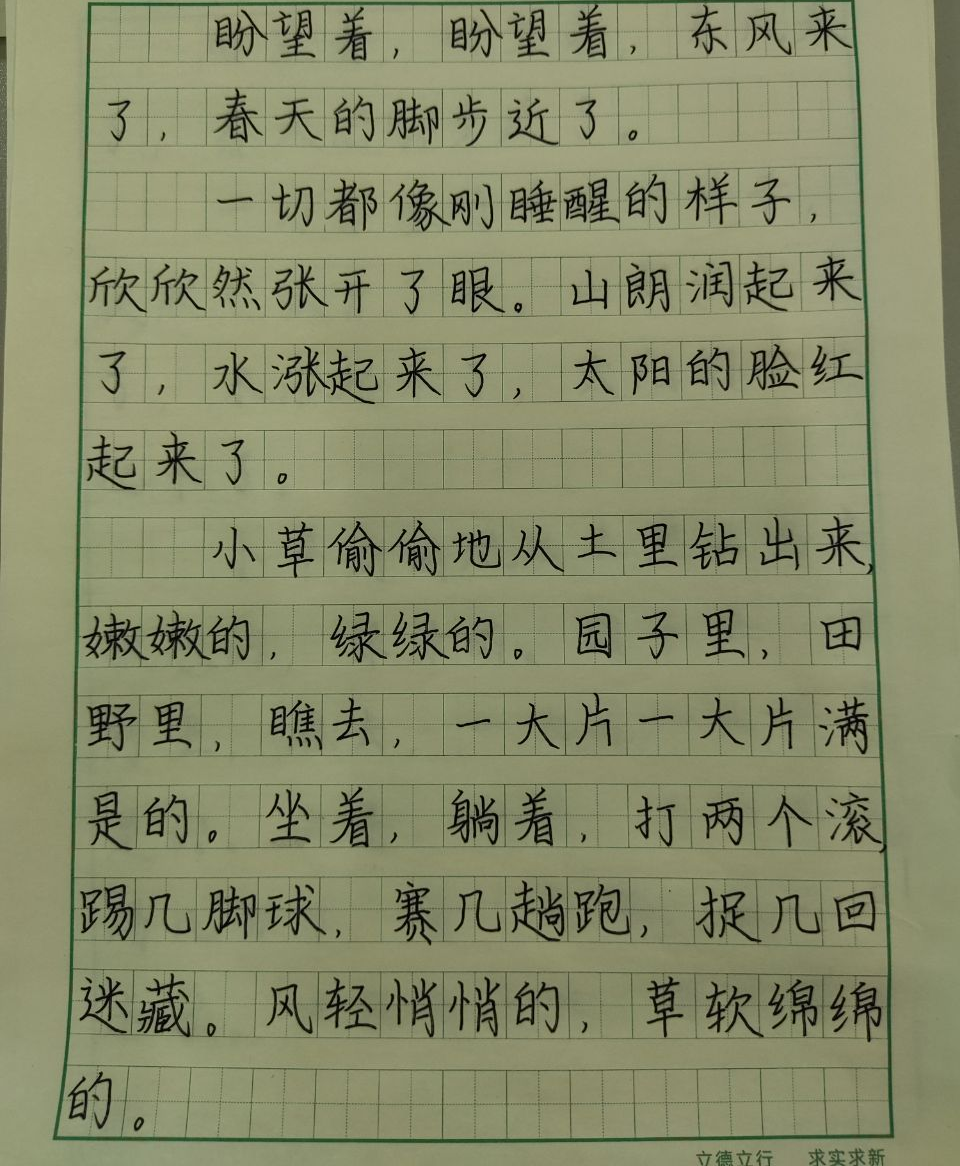 盼望着，盼望着，东风来
了，春天的脚步近了。
一切都像刚睡醒的样子，
欣欣然张开了眼。山朗润起来
了，水涨起来了，太阳的脸红
起来了。
小草偷偷地从土里钻出来，
嫩嫩的，绿绿的。园子里，田
野里，瞧去，一大片一大片满
是的。坐着，躺着，打两个滚，
踢几脚球，赛几趟跑，捉几回
迷藏。风轻悄悄的，草软绵绵
的。
立德立行 求实求新